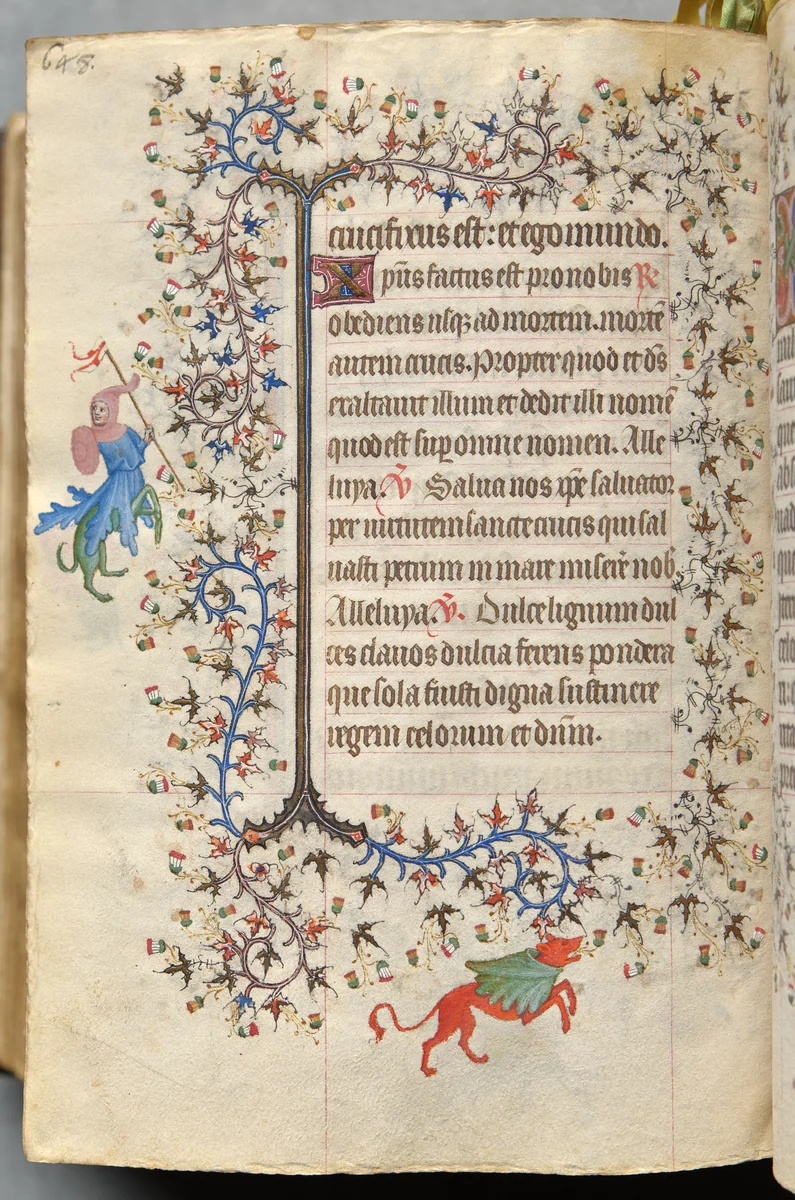 648.
crucifixus est: et ego mundo.
Xp̄us factus est pro nobis R
obediens usq ad mortem. mortē
autem crucis. Propter quod et ds̄
exaltavit illum et dedit illi nomē
quod est sup omne nomen. Alle
luya. V̄ Salva nos xp̄e salvator
per virtutem sancte crucis qui sal
vasti petrum in mare miserē nob
Alleluya. V̄. Dulce lignum dul
ces clavos dulcia ferens pondera
que sola fuisti digna sustinere
regem celorum et dn̄m.